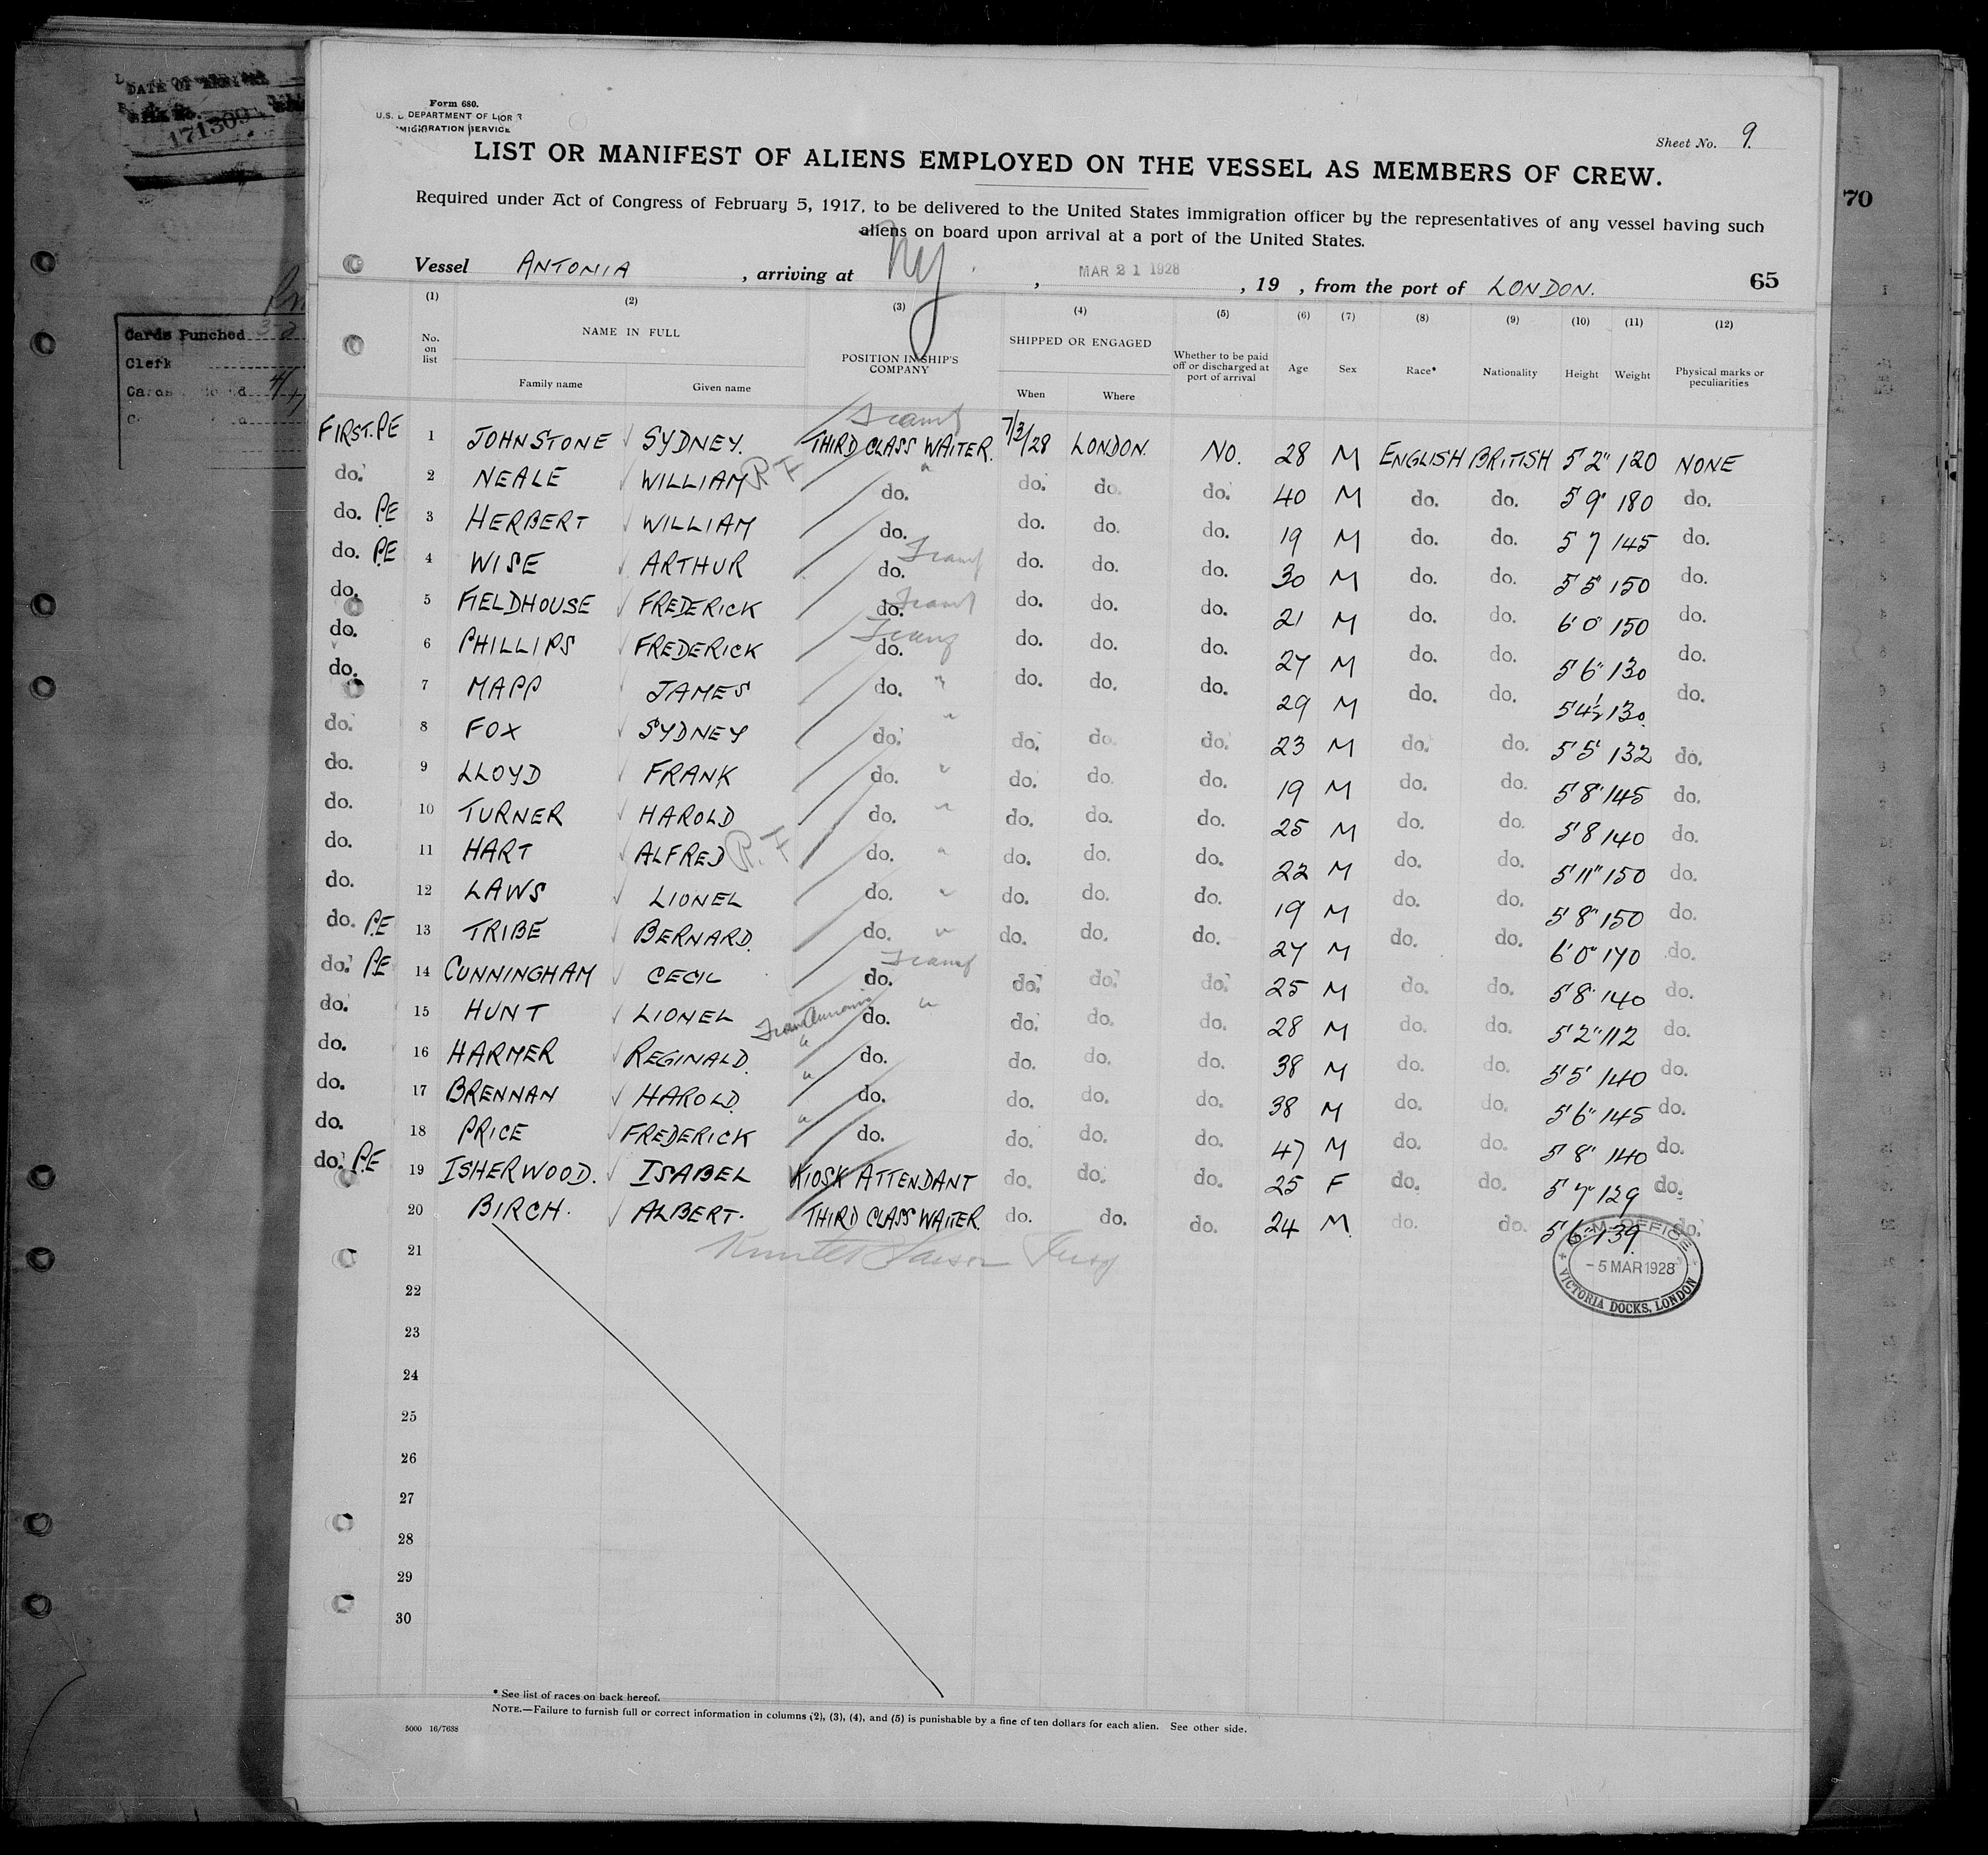 DATE OF ARRIVAL
171309
Cards Punched
Clerk
70
Form 680.
U.S. DEPARTMENT OF LABOR
IMMIGRATION SERVICE
Sheet No. 9.
LIST OR MANIFEST OF ALIENS EMPLOYED ON THE VESSEL AS MEMBERS OF CREW.
Required under Act of Congress of February 5, 1917, to be delivered to the United States immigration officer by the representatives of any vessel having such
aliens on board upon arrival at a port of the United States.
Vessel ANTONIA , arriving at NY. , MAR 21 1928 , 19 , from the port of LONDON. 65
(1) (2) (3) (4) (5) (6) (7) (8) (9) (10) (11) (12)
No. on list NAME IN FULL POSITION IN SHIP'S COMPANY SHIPPED OR ENGAGED Whether to be paid off or discharged at port of arrival Age Sex Race* Nationality Height Weight Physical marks or peculiarities
Family name Given name When Where
FIRST. P.E 1 JOHNSTONE SYDNEY. THIRD CLASS WAITER. 7/3/28 LONDON. NO. 28 M ENGLISH BRITISH 5'2" 120 NONE
do. 2 NEALE WILLIAM R F do. do. do. do. 40 M do. do. 5'9" 180 do.
do. P.E 3 HERBERT WILLIAM do. do. do. do. 19 M do. do. 5 7 145 do.
do. P.E 4 WISE ARTHUR do. do. do. do. 30 M do. do. 5'5" 150 do.
do. 5 FIELDHOUSE FREDERICK do. do. do. do. 21 M do. do. 6'0" 150 do.
do. 6 PHILLIPS FREDERICK do. do. do. do. 27 M do. do. 5'6" 130 do.
do. 7 MAPP JAMES do. " do. do. do. 29 M do. do. 5'4½ 130. do.
do. 8 FOX SYDNEY do. " do. do. do. 23 M do. do. 5'5" 132 do.
do. 9 LLOYD FRANK do. " do. do. do. 19 M do. do. 5'8" 145 do.
do. 10 TURNER HAROLD do. " do. do. do. 25 M do. do. 5'8 140 do.
do. 11 HART ALFRED R.F do. " do. do. do. 22 M do. do. 5'11" 150 do.
do. 12 LAWS LIONEL do. " do. do. do. 19 M do. do. 5'8" 150 do.
do. P.E 13 TRIBE BERNARD. do. " do. do. do. 27 M do. do. 6'0" 170 do.
do. P.E 14 CUNNINGHAM CECIL do. do. do. do. 25 M do. do. 5'8" 140 do.
do. 15 HUNT LIONEL do. " do. do. do. 28 M do. do. 5'2" 112 do.
do. 16 HARMER REGINALD. " do. do. do. do. 38 M do. do. 5'5" 140 do.
do. 17 BRENNAN HAROLD. " do. do. do. do. 38 M do. do. 5'6" 145 do.
do. 18 PRICE FREDERICK " do. do. do. do. 47 M do. do. 5'8" 140 do.
do. P.E 19 ISHERWOOD. ISABEL KIOSK ATTENDANT do. do. do. 25 F do. do. 5'7" 129 do.
20 BIRCH. ALBERT. THIRD CLASS WAITER. do. do. do. 24 M. do. do. 5'6" 139. do.
21
22
23
24
25
26
27
28
29
30
M.M. OFFICE
-5 MAR 1928
VICTORIA DOCKS, LONDON
* See list of races on back hereof.
NOTE.—Failure to furnish full or correct information in columns (2), (3), (4), and (5) is punishable by a fine of ten dollars for each alien. See other side.
5000 16/7638